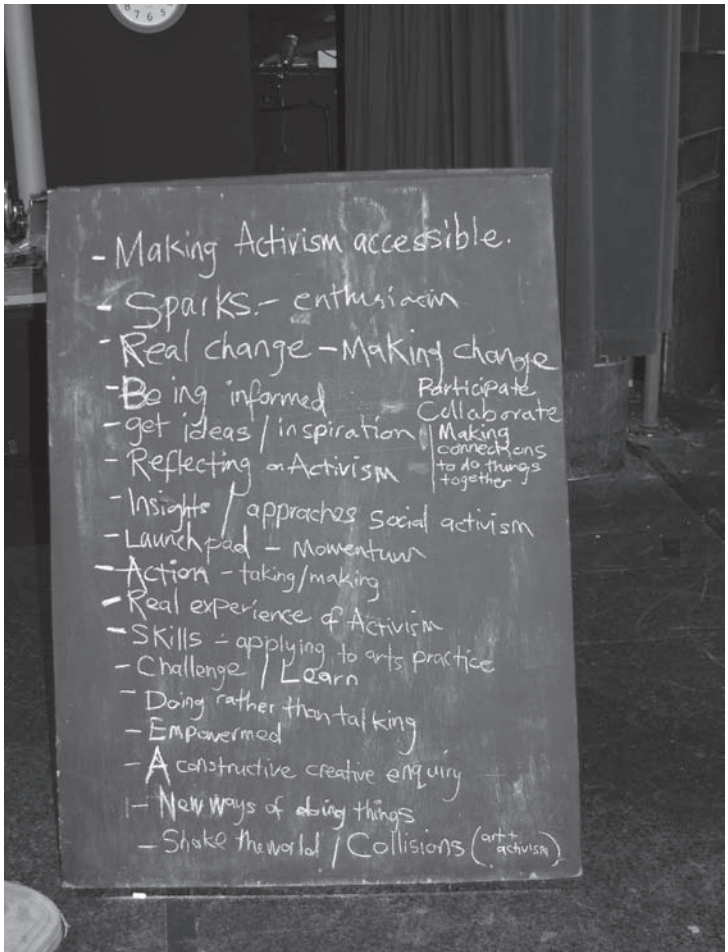 8 7 6 5
- Making Activism accessible.
- Sparks. - enthusiasm
- Real change - Making change
- Being informed
Participate
Collaborate
- get ideas / inspiration
Making
connections
to do things
together
- Reflecting on Activism
- Insights / appraches Social activism
- Launchpad - Momentum
- Action - taking/making
- Real experience of Activism
- Skills - applying to arts practice
- Challenge / Learn
- Doing rather than talking
- Empowermed
- A constructive creative enquiry
- New ways of doing things
- Shake the world / Collisions (art + activism)